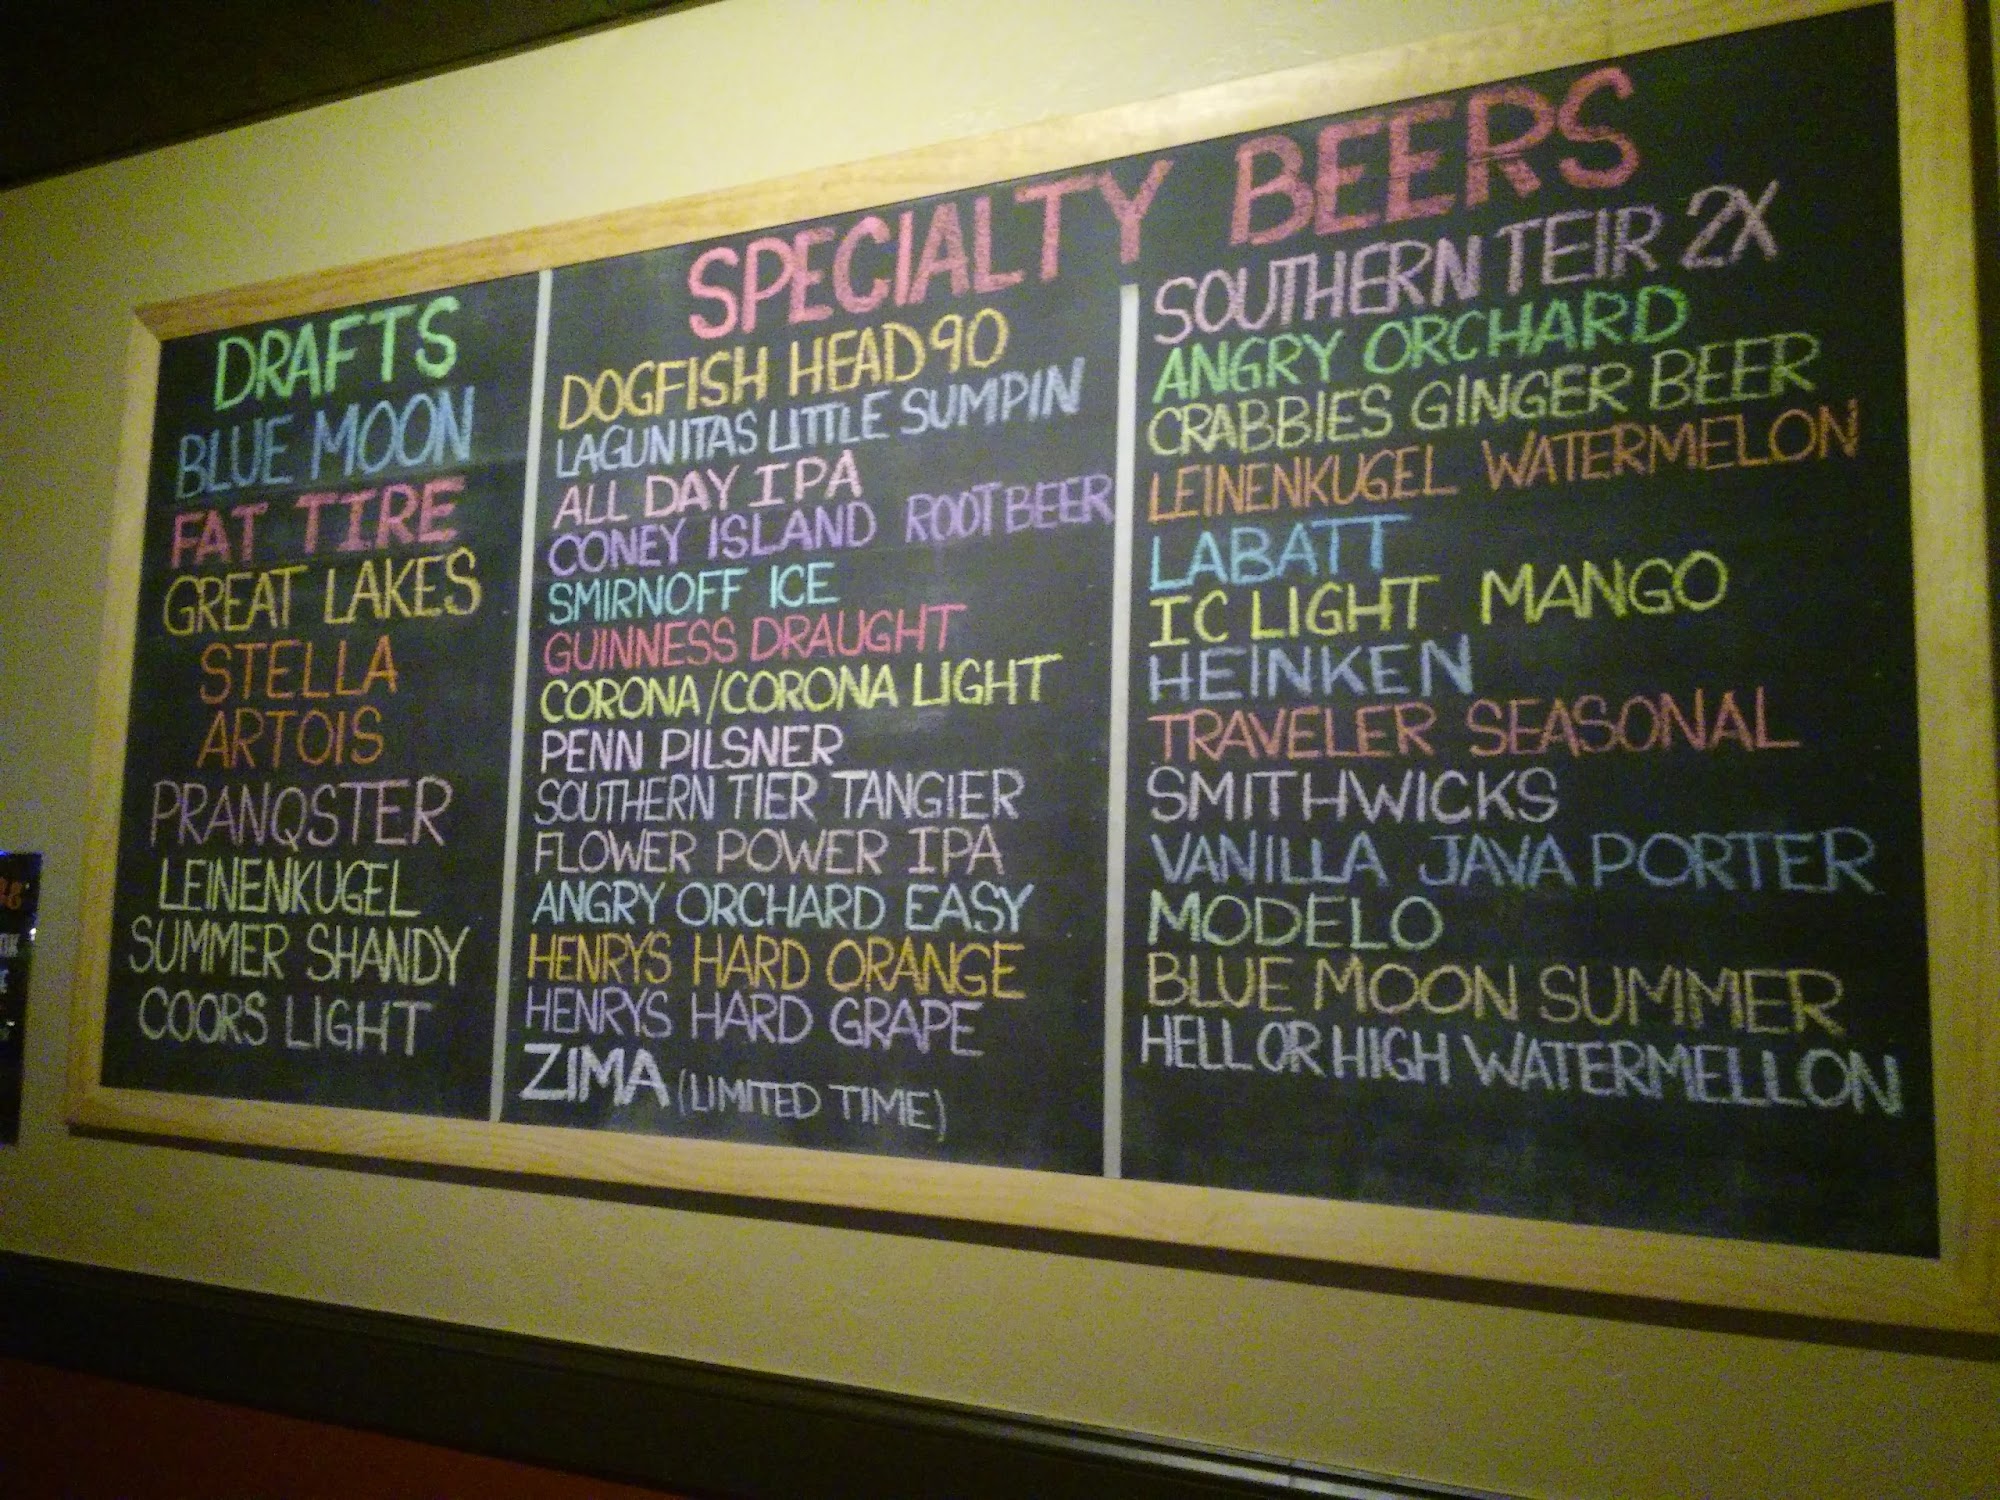 DRAFTS
BLUE MOON
FAT TIRE
GREAT LAKES
STELLA
ARTOIS
PRANQSTER
LEINENKUGEL
SUMMER SHANDY
COORS LIGHT
SPECIALTY BEERS
DOGFISH HEAD 90
LAGUNITAS LITTLE SUMPIN
ALL DAY IPA
CONEY ISLAND ROOT BEER
SMIRNOFF ICE
GUINNESS DRAUGHT
CORONA/CORONA LIGHT
PENN PILSNER
SOUTHERN TIER TANGIER
FLOWER POWER IPA
ANGRY ORCHARD EASY
HENRYS HARD ORANGE
HENRYS HARD GRAPE
ZIMA (LIMITED TIME)
SOUTHERN TEIR 2X
ANGRY ORCHARD
CRABBIES GINGER BEER
LEINENKUGEL WATERMELON
LABATT
IC LIGHT MANGO
HEINKEN
TRAVELER SEASONAL
SMITHWICKS
VANILLA JAVA PORTER
MODELO
BLUE MOON SUMMER
HELL OR HIGH WATERMELLON